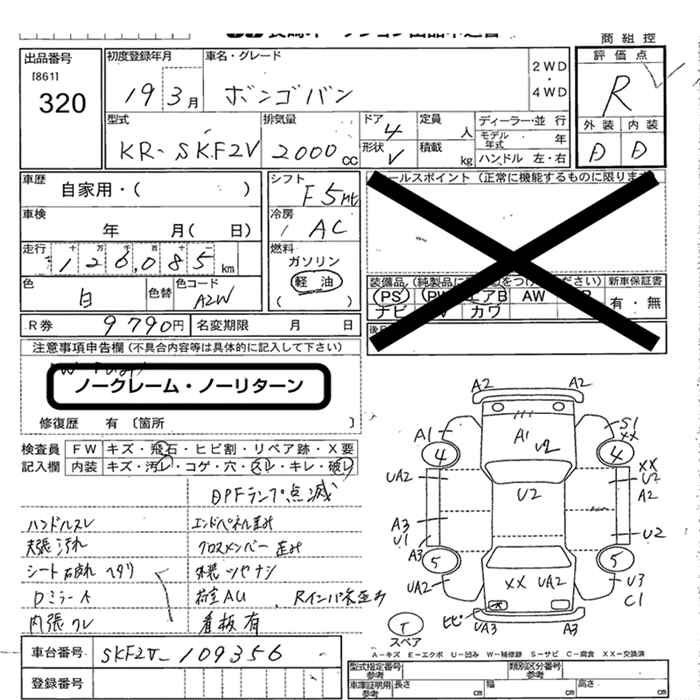 商組控
出品番号
[861]
320
初度登録年月
19 3月
車名・グレード
ボンゴバン
2WD
・
4WD
評価点
R
外装 内装
D D
型式
KR-SKF2V
排気量
2000cc
ドア
4
形状
V
定員
人
積載
kg
ディーラー・並 行
モデル年式 年
ハンドル 左・右
車歴
自家用・( )
車検
年 月( 日)
走行
十 万 千 百 十 一
126,085km
色
白
色替
色コード
A2W
シフト
F5Mt
冷房
AC
燃料
ガソリン
軽 油
( )
ールスポイント (正常に機能するものに限ります
装備品(純製品に をつけください)
新車保証書
PS PW エアB AW
ナビ カワ
有・無
R券
9790円
名変期限 月 日
注意事項申告欄(不具合内容等は具体的に記入して下さい)
ノークレーム・ノーリターン
修復歴 有 〔箇所 〕
検査員
記入欄
FW キズ・飛石・ヒビ割・リペア跡・X要
内装 キズ・汚レ・コゲ・穴・スレ・キレ・破レ
DPFランプ点滅
ハンドルスレ
エンドパネル歪み
天張汚れ
クロスメンバー歪み
シート破れ ヘタリ
外装ツヤナシ
内張スレ
看板有
A2
A1
A1
U2
S1
XX
4
4
UA2
U2
XX
U2
A2
A3
U1
U2
A3
5
5
UA2
XX UA2
U3
C1
ヒビ
UA3
A3
T
スペア
A2
A-キズ E-エクボ U-凹み W-補修跡 S-サビ C-腐食 XX-交換済
車台番号
SKF2V-109356
登録番号
型式指定番号
参考
類別区分番号
参考
車庫証明用
参考
長さ cm
幅 cm
高さ cm